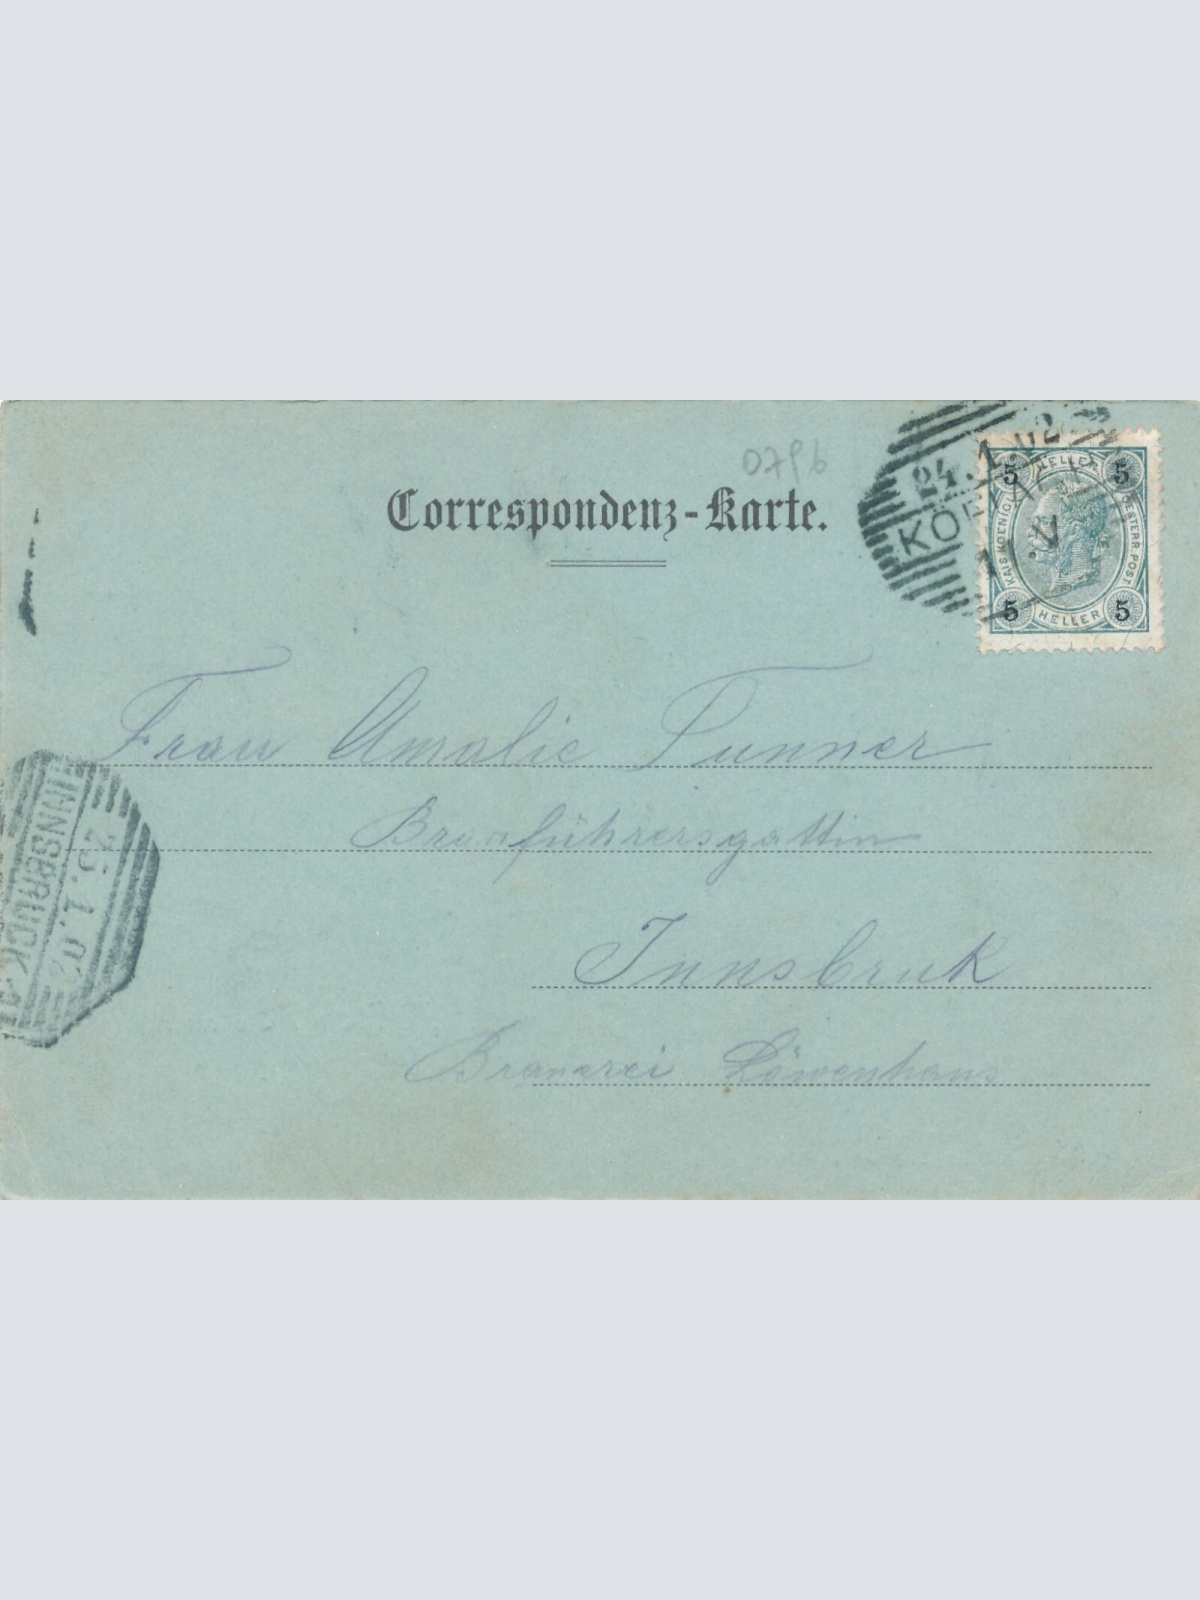 0796
Correspondenz-Karte.
24.1.02
5 HELLER 5
KAIS. KOENIGL. OESTERR. POST.
5 HELLER 5
Frau Amalie Tunner
Brauführersgattin
Innsbruk
Brauerei Löwenhaus
INNSBRUCK 1
25.1.02